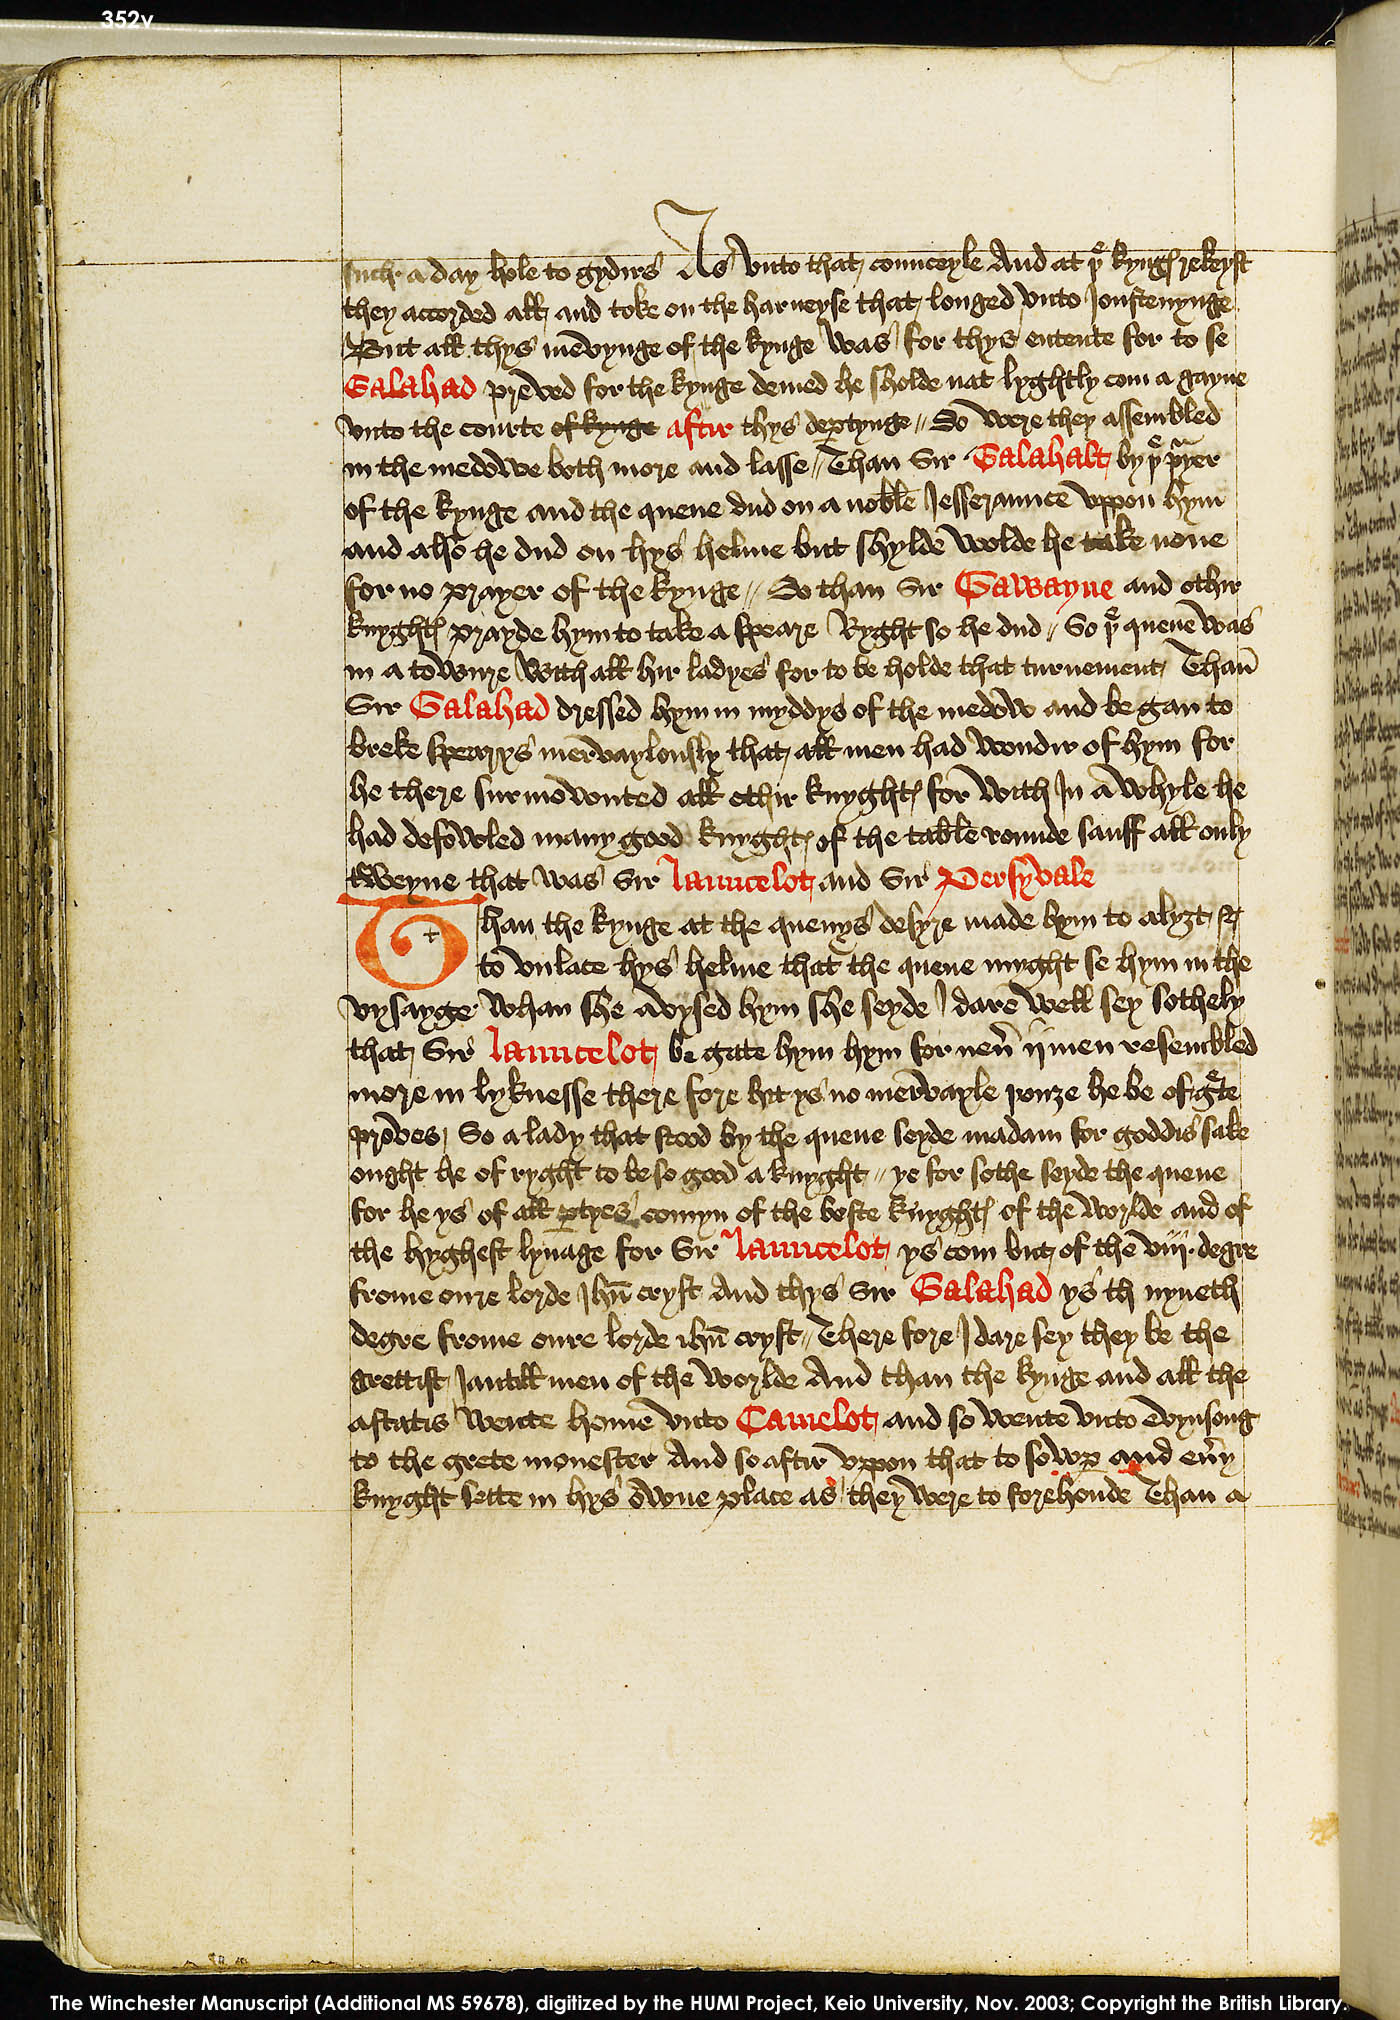 352v
such a day hole to gydirs As vnto that counceyle And at þe kyngꝭ rekeyst
they accorded all and toke on the harneyse that longed vnto Joustenynge
But all thys mevynge of the kynge was for thys entente for to se
Galahad preved for the kynge demed he sholde nat lyghtly com a gayne
vnto the courte of kynge aftir thys deꝑtynge // So were they assembled
in the medowe both more and lasse // Than Sir Galahalt by þe pͬyer
of the kynge and the quene dud on a noble Jesseraunce vppon hym
and also he dud on hys helme but shylde wolde he take none
for no prayer of the kynge // So than Sir Gawayne and othir
knyghtꝭ prayde hym to take a speare Ryght so he dud // So þe quene was
in a towure with all hir ladyes for to be holde that turnement Than̄
Sir Galahad dressed hym in myddys of the medow and be gan to
breke spearys mervaylously that all men had wondir of hym for
he there surmownted all othir knyghtꝭ for with In a whyle he
had defowled many good knyghtꝭ of the table rounde sauff all only
tweyne that was Sir Launcelot and Sir Persyvale
Than the kynge at the quenys desyre made hym to alyȝt &
to vnlace hys helme that the quene myght se hym in the
vysayge whan she avysed hym she seyde I dare well sey sothely
that Sir Launcelot be gate hym hym for nen̄ ij men resembled
more in lyknesse there fore hit ys no mervayle þouȝe he be of gͬte
proves So a lady that stood by the quene seyde madam for goddis sake
ought he of ryght to be so good a knyght // ye for sothe seyde the quene
for he ys of all ꝑtyes comyn of the beste knyghtꝭ of the worlde and of
the hyghest lynage for Sir Launcelot ys com but of the viijͭ degre
frome oure lorde Jhū cryst And thys Sir Galahad ys th nyneth
degre frome oure lorde ihū cryst // There fore I dare sey they be the
grettist Jantill men of the worlde And than the kynge and all the
astatis wente home vnto Camelot and so wente vnto evynsong
to the grete monester And so aftir vppon that to sowper and eūy
knyght sette in hys owne place as they were to forehonde Than a
The Winchester Manuscript (Additional MS 59678), digitized by the HUMI Project, Keio University, Nov. 2003; Copyright the British Library.